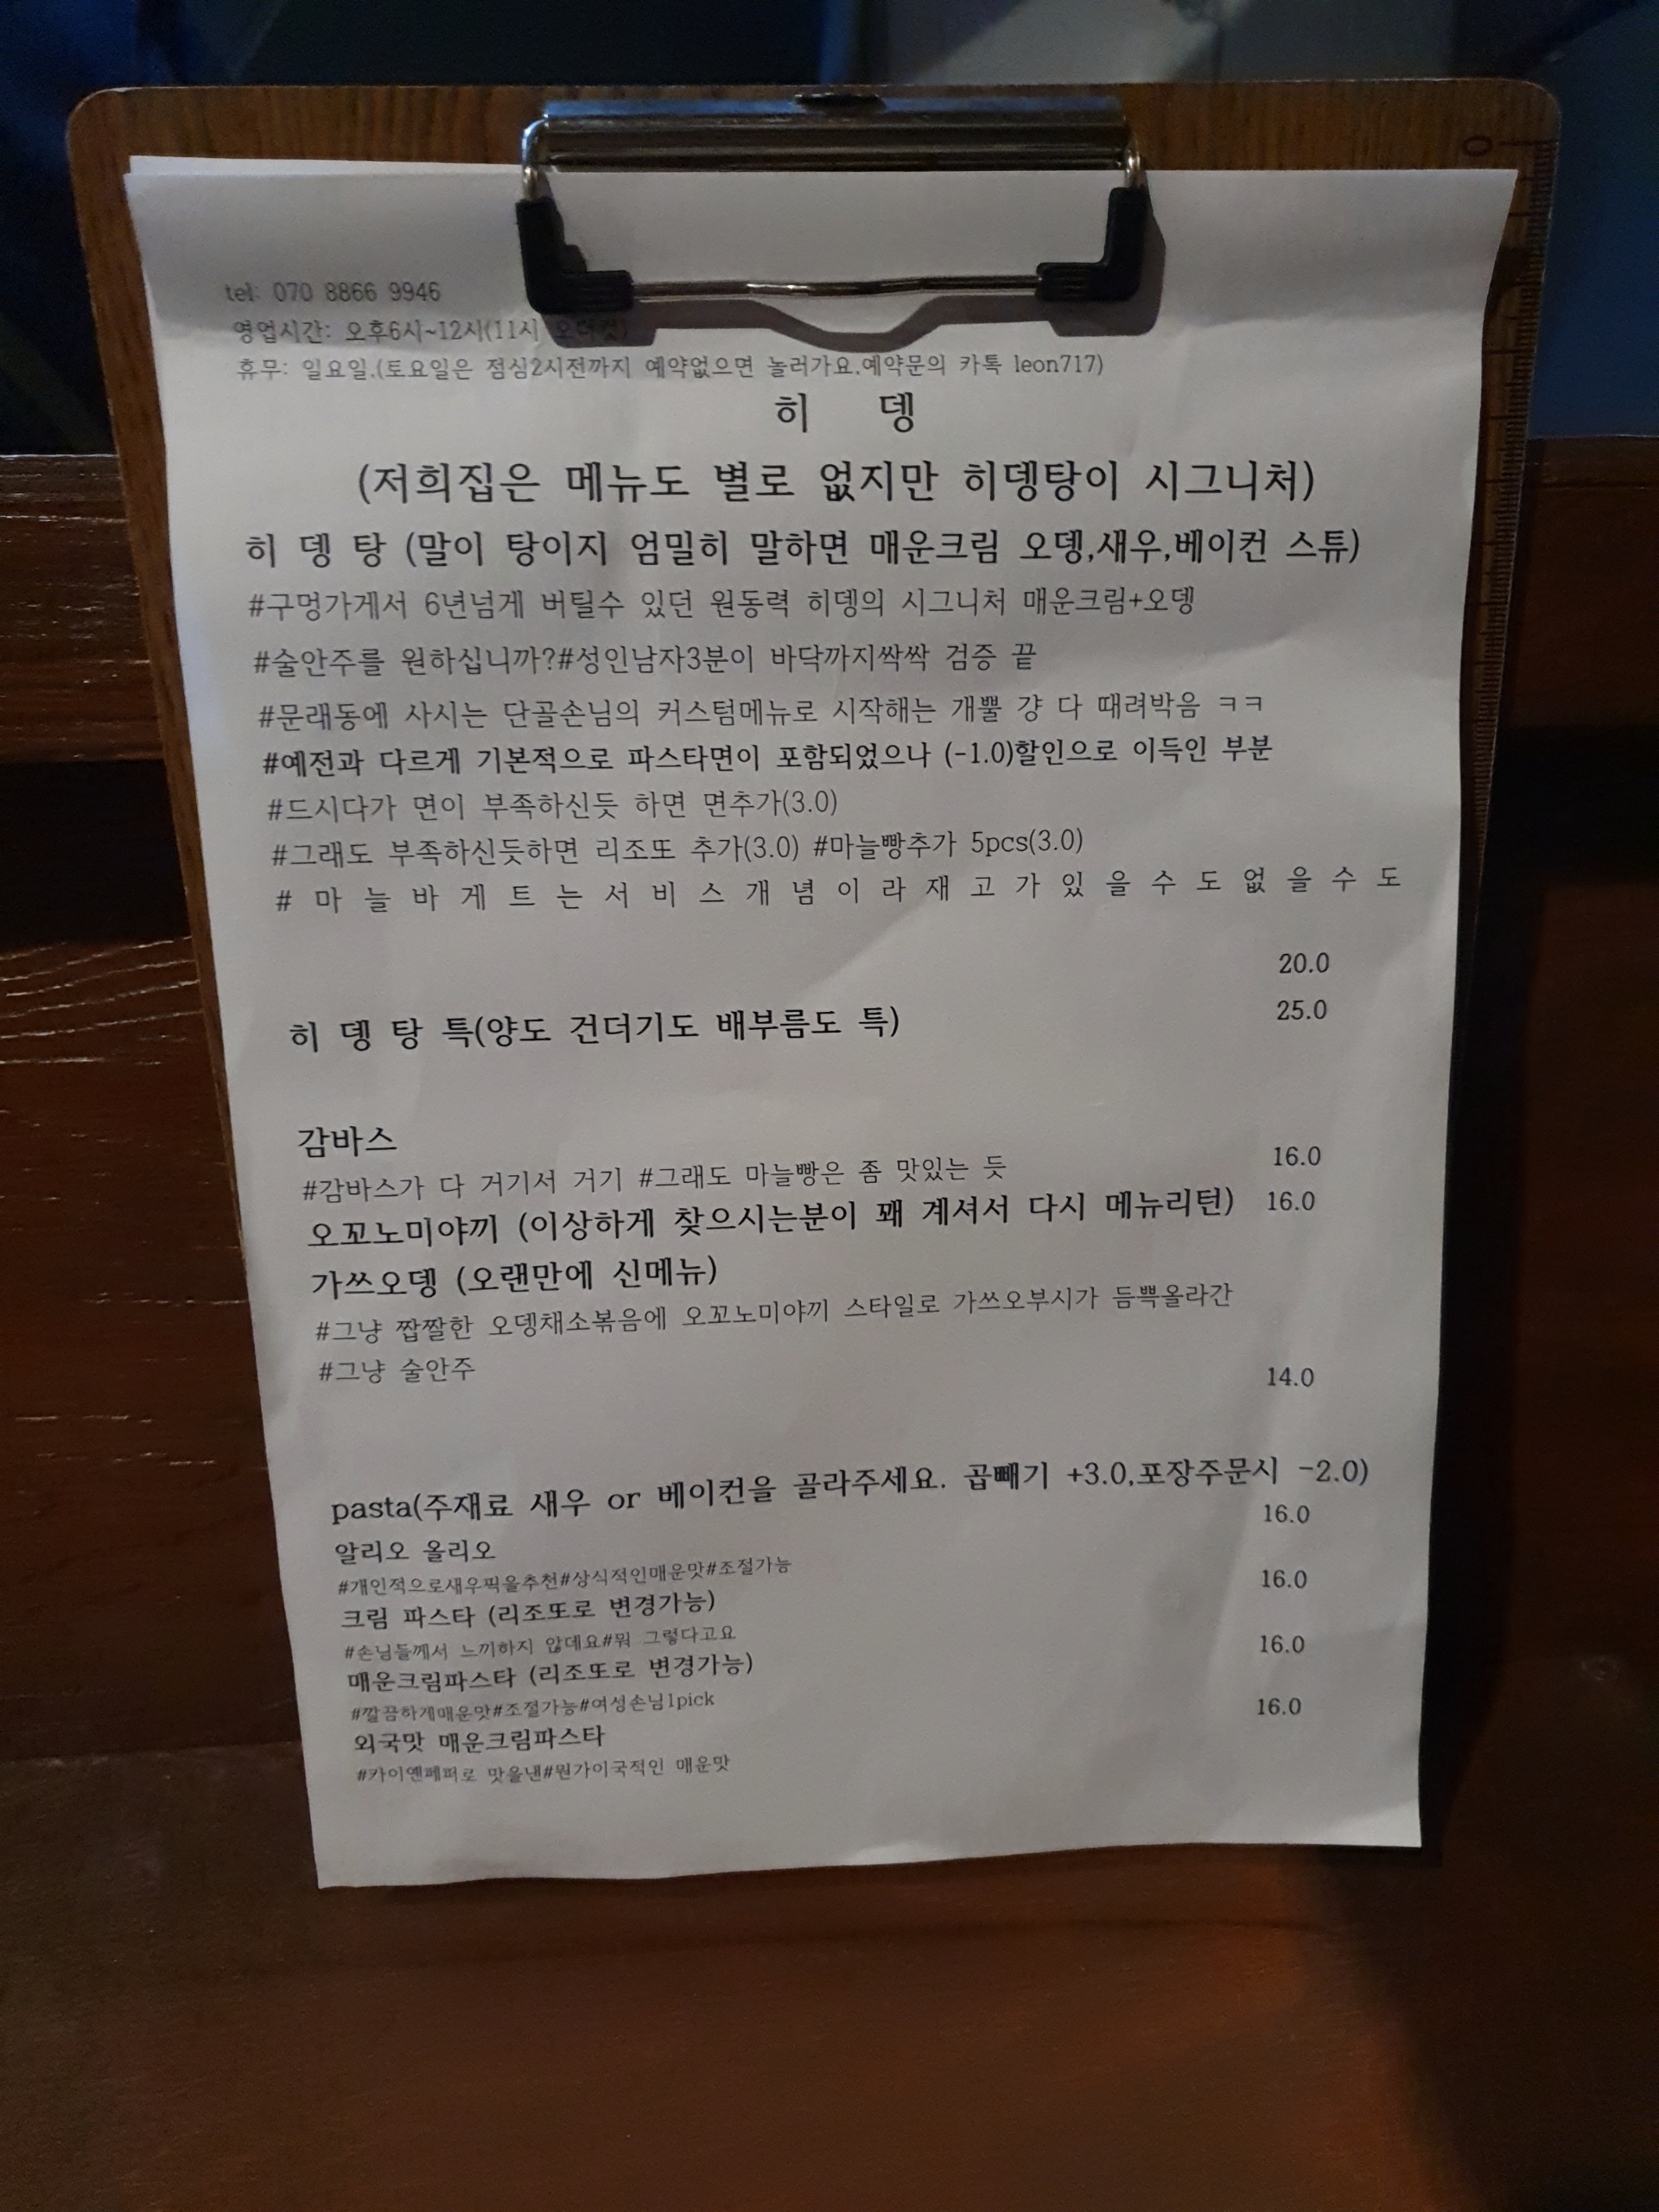 tel: 070 8866 9946
영업시간: 오후6시~12시(11시 오더컷)
휴무: 일요일.(토요일은 점심2시전까지 예약없으면 놀러가요.예약문의 카톡 leon717)
히 뎅
(저희집은 메뉴도 별로 없지만 히뎅탕이 시그니처)
히 뎅 탕 (말이 탕이지 엄밀히 말하면 매운크림 오뎅,새우,베이컨 스튜)
#구멍가게서 6년넘게 버틸수 있던 원동력 히뎅의 시그니처 매운크림+오뎅
#술안주를 원하십니까?#성인남자3분이 바닥까지싹싹 검증 끝
#문래동에 사시는 단골손님의 커스텀메뉴로 시작해는 개뿔 걍 다 때려박음 ㅋㅋ
#예전과 다르게 기본적으로 파스타면이 포함되었으나 (-1.0)할인으로 이득인 부분
#드시다가 면이 부족하신듯 하면 면추가(3.0)
#그래도 부족하신듯하면 리조또 추가(3.0) #마늘빵추가 5pcs(3.0)
# 마 늘 바 게 트 는 서 비 스 개 념 이 라 재 고 가 있 을 수 도 없 을 수 도
20.0
히 뎅 탕 특(양도 건더기도 배부름도 특) 25.0
감바스
#감바스가 다 거기서 거기 #그래도 마늘빵은 좀 맛있는 듯 16.0
오꼬노미야끼 (이상하게 찾으시는분이 꽤 계셔서 다시 메뉴리턴) 16.0
가쓰오뎅 (오랜만에 신메뉴)
#그냥 짭짤한 오뎅채소볶음에 오꼬노미야끼 스타일로 가쓰오부시가 듬뿍올라간
#그냥 술안주 14.0
pasta(주재료 새우 or 베이컨을 골라주세요. 곱빼기 +3.0,포장주문시 -2.0)
알리오 올리오 16.0
#개인적으로새우픽을추천#상식적인매운맛#조절가능
크림 파스타 (리조또로 변경가능) 16.0
#손님들께서 느끼하지 않데요#뭐 그렇다고요
매운크림파스타 (리조또로 변경가능) 16.0
#깔끔하게매운맛#조절가능#여성손님1pick
외국맛 매운크림파스타 16.0
#카이옌페퍼로 맛을낸#뭔가이국적인 매운맛